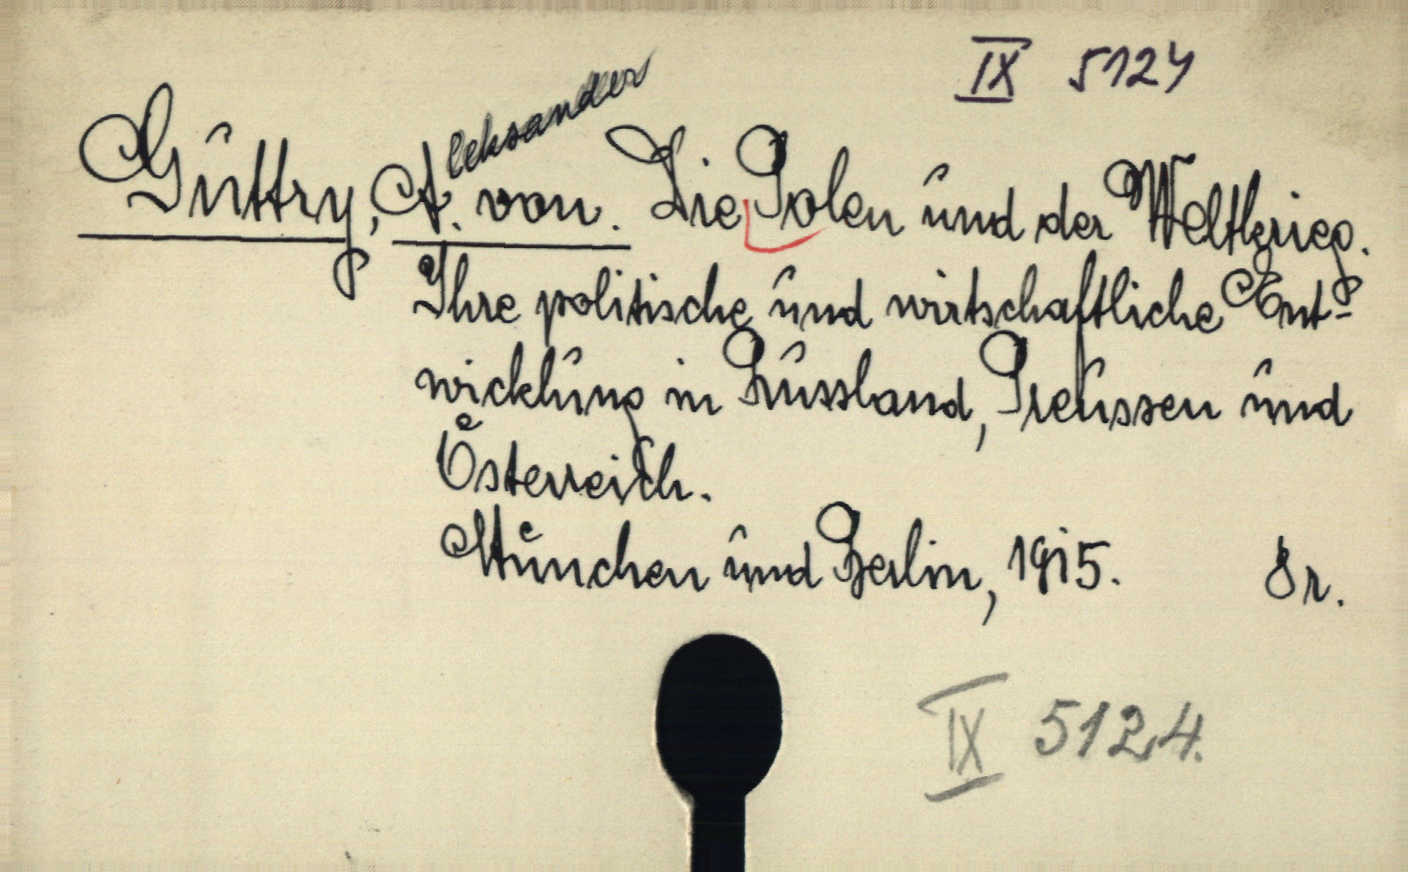 IX 5124
Guttry, A. von. Die Polen und der Weltkrieg.
leksander
Ihre politische und wirtschaftliche Ent-
wicklung in Russland, Preussen und
Österreich.
München und Berlin, 1915. 8r.
IX 5124.